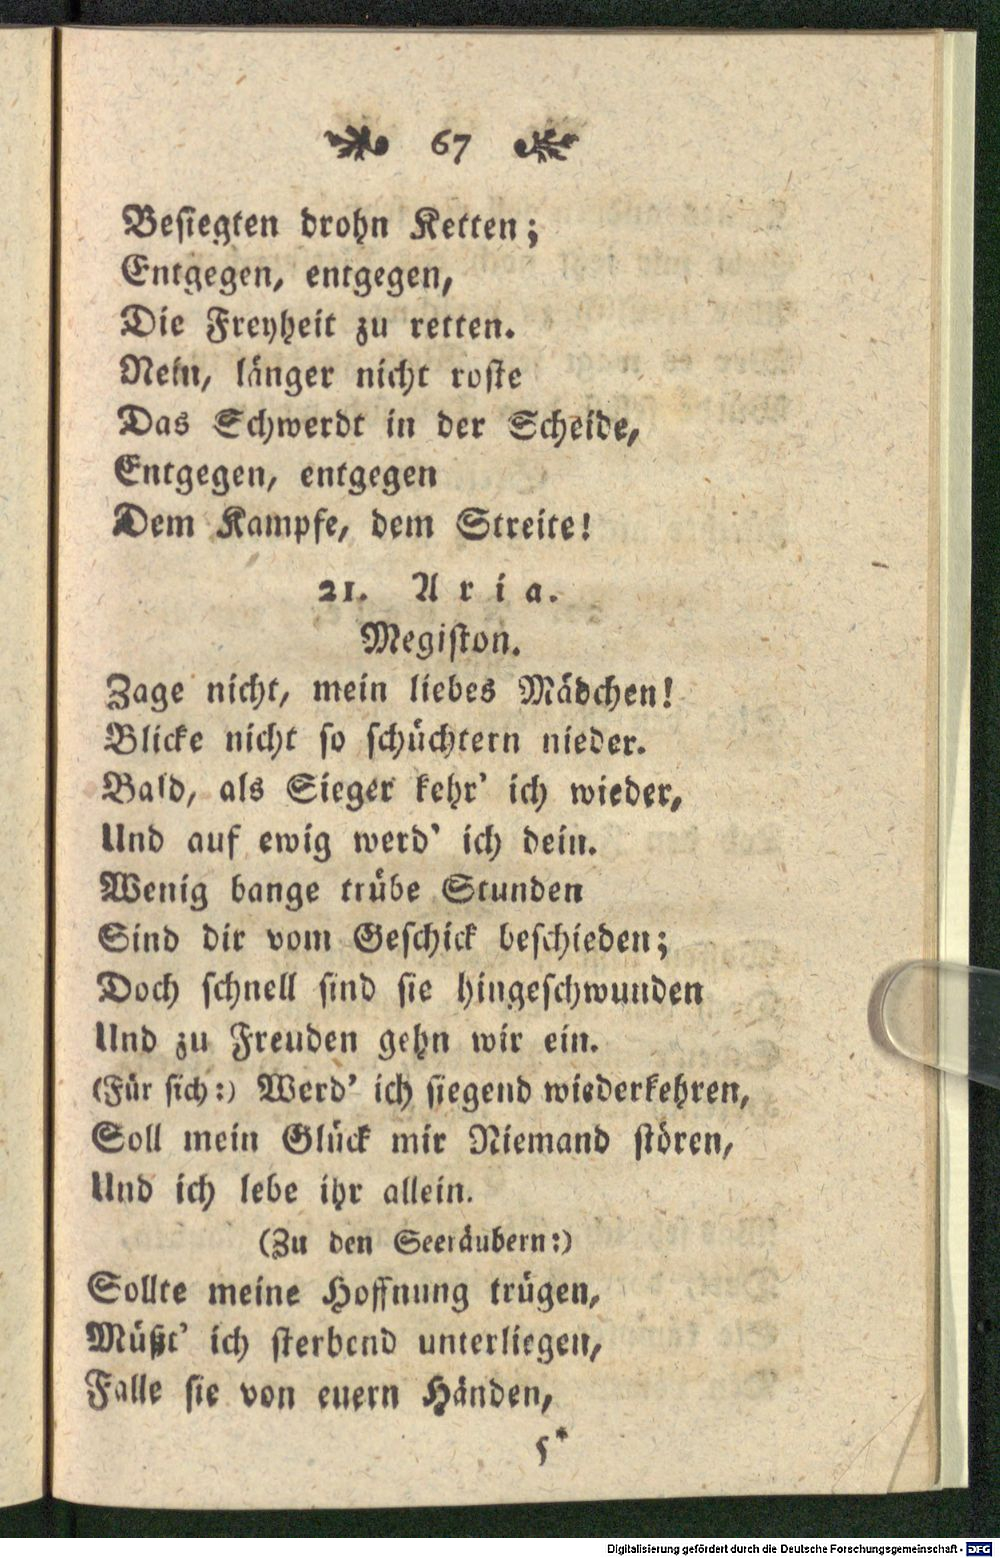 67
Besiegten drohn Ketten;
Entgegen, entgegen,
Die Freyheit zu retten.
Nein, länger nicht roste
Das Schwerdt in der Scheide,
Entgegen, entgegen
Dem Kampfe, dem Streite!
21. Aria.
Megiston.
Zage nicht, mein liebes Mädchen!
Blicke nicht so schüchtern nieder.
Bald, als Sieger kehr' ich wieder,
Und auf ewig werd' ich dein.
Wenig bange trübe Stunden
Sind dir vom Geschick beschieden;
Doch schnell sind sie hingeschwunden
Und zu Freuden gehn wir ein.
(Für sich:) Werd' ich siegend wiederkehren,
Soll mein Glück mir Niemand stören,
Und ich lebe ihr allein.
(Zu den Seeräubern:)
Sollte meine Hoffnung trügen,
Müßt' ich sterbend unterliegen,
Falle sie von euern Händen,
5*
Digitalisierung gefördert durch die Deutsche Forschungsgemeinschaft - DFG